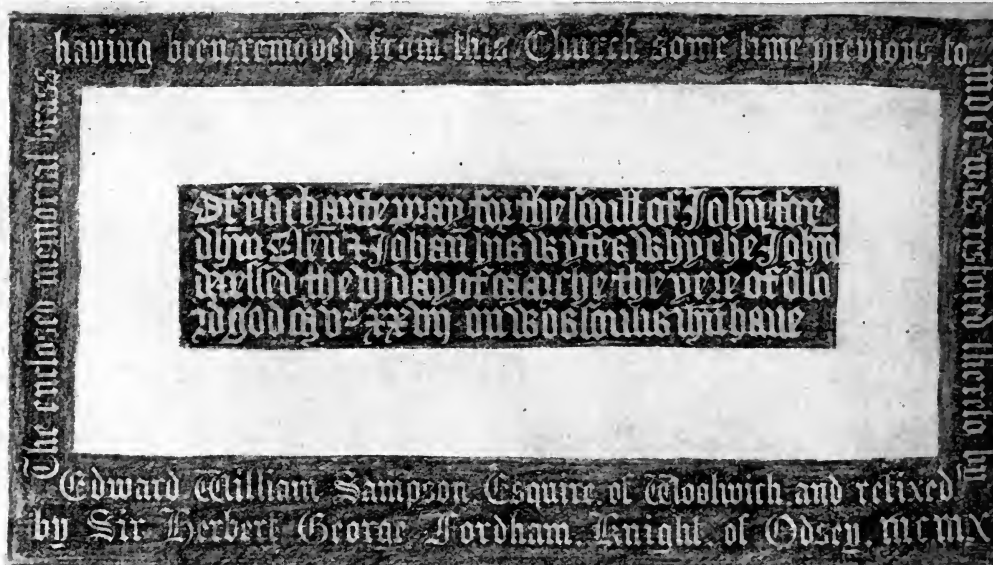 The enclosed memorial brass
having been removed from this Church some time previous to
MDCCC was restored thereto by
Edward William Sampson. Esquire. of Woolwich. and refixed
by Sir Herbert George Fordham. Knight. of Odsey. MCMX
Of yõ charite pray for the soull of John for
dhm̃ Alen & Johan his wyfes whyche John
decessed the day of marche the yere of lo
rd god xx on whos soullis ihũ have